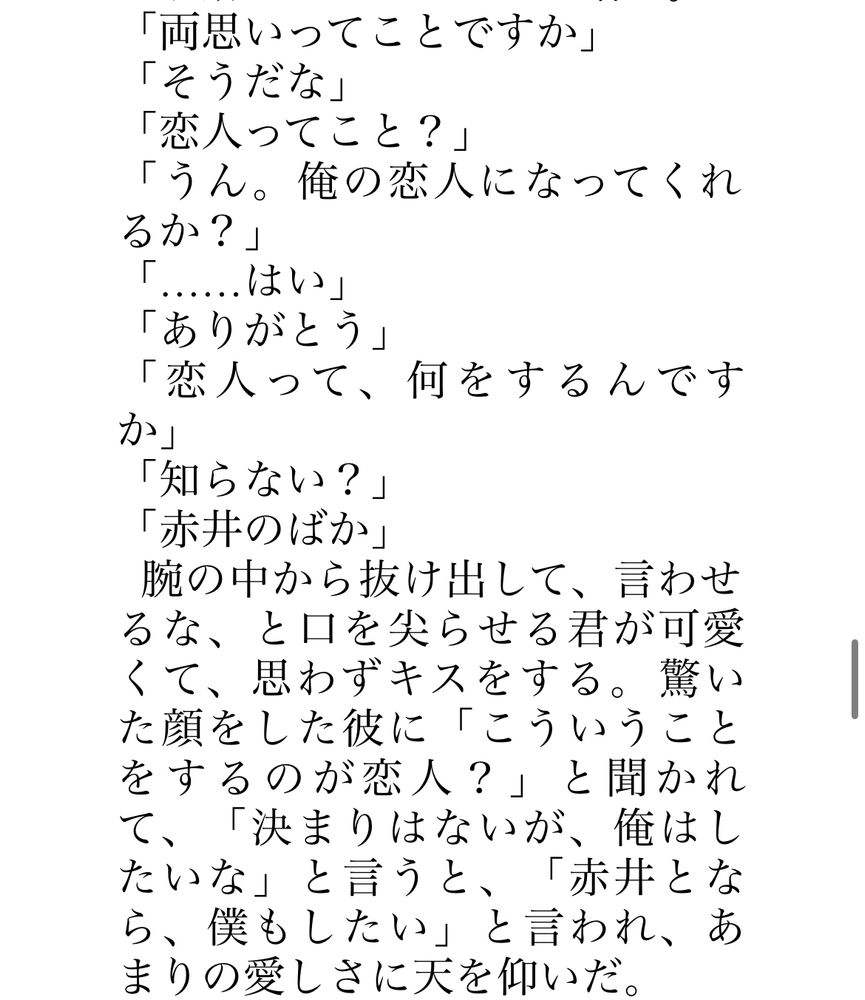 「両思いってことですか」
「そうだな」
「恋人ってこと？」
「うん。俺の恋人になってくれ
るか？」
「……はい」
「ありがとう」
「恋人って、何をするんです
か」
「知らない？」
「赤井のばか」
腕の中から抜け出して、言わせ
るな、と口を尖らせる君が可愛
くて、思わずキスをする。驚い
た顔をした彼に「こういうこと
をするのが恋人？」と聞かれ
て、「決まりはないが、俺はし
たいな」と言うと、「赤井とな
ら、僕もしたい」と言われ、あ
まりの愛しさに天を仰いだ。